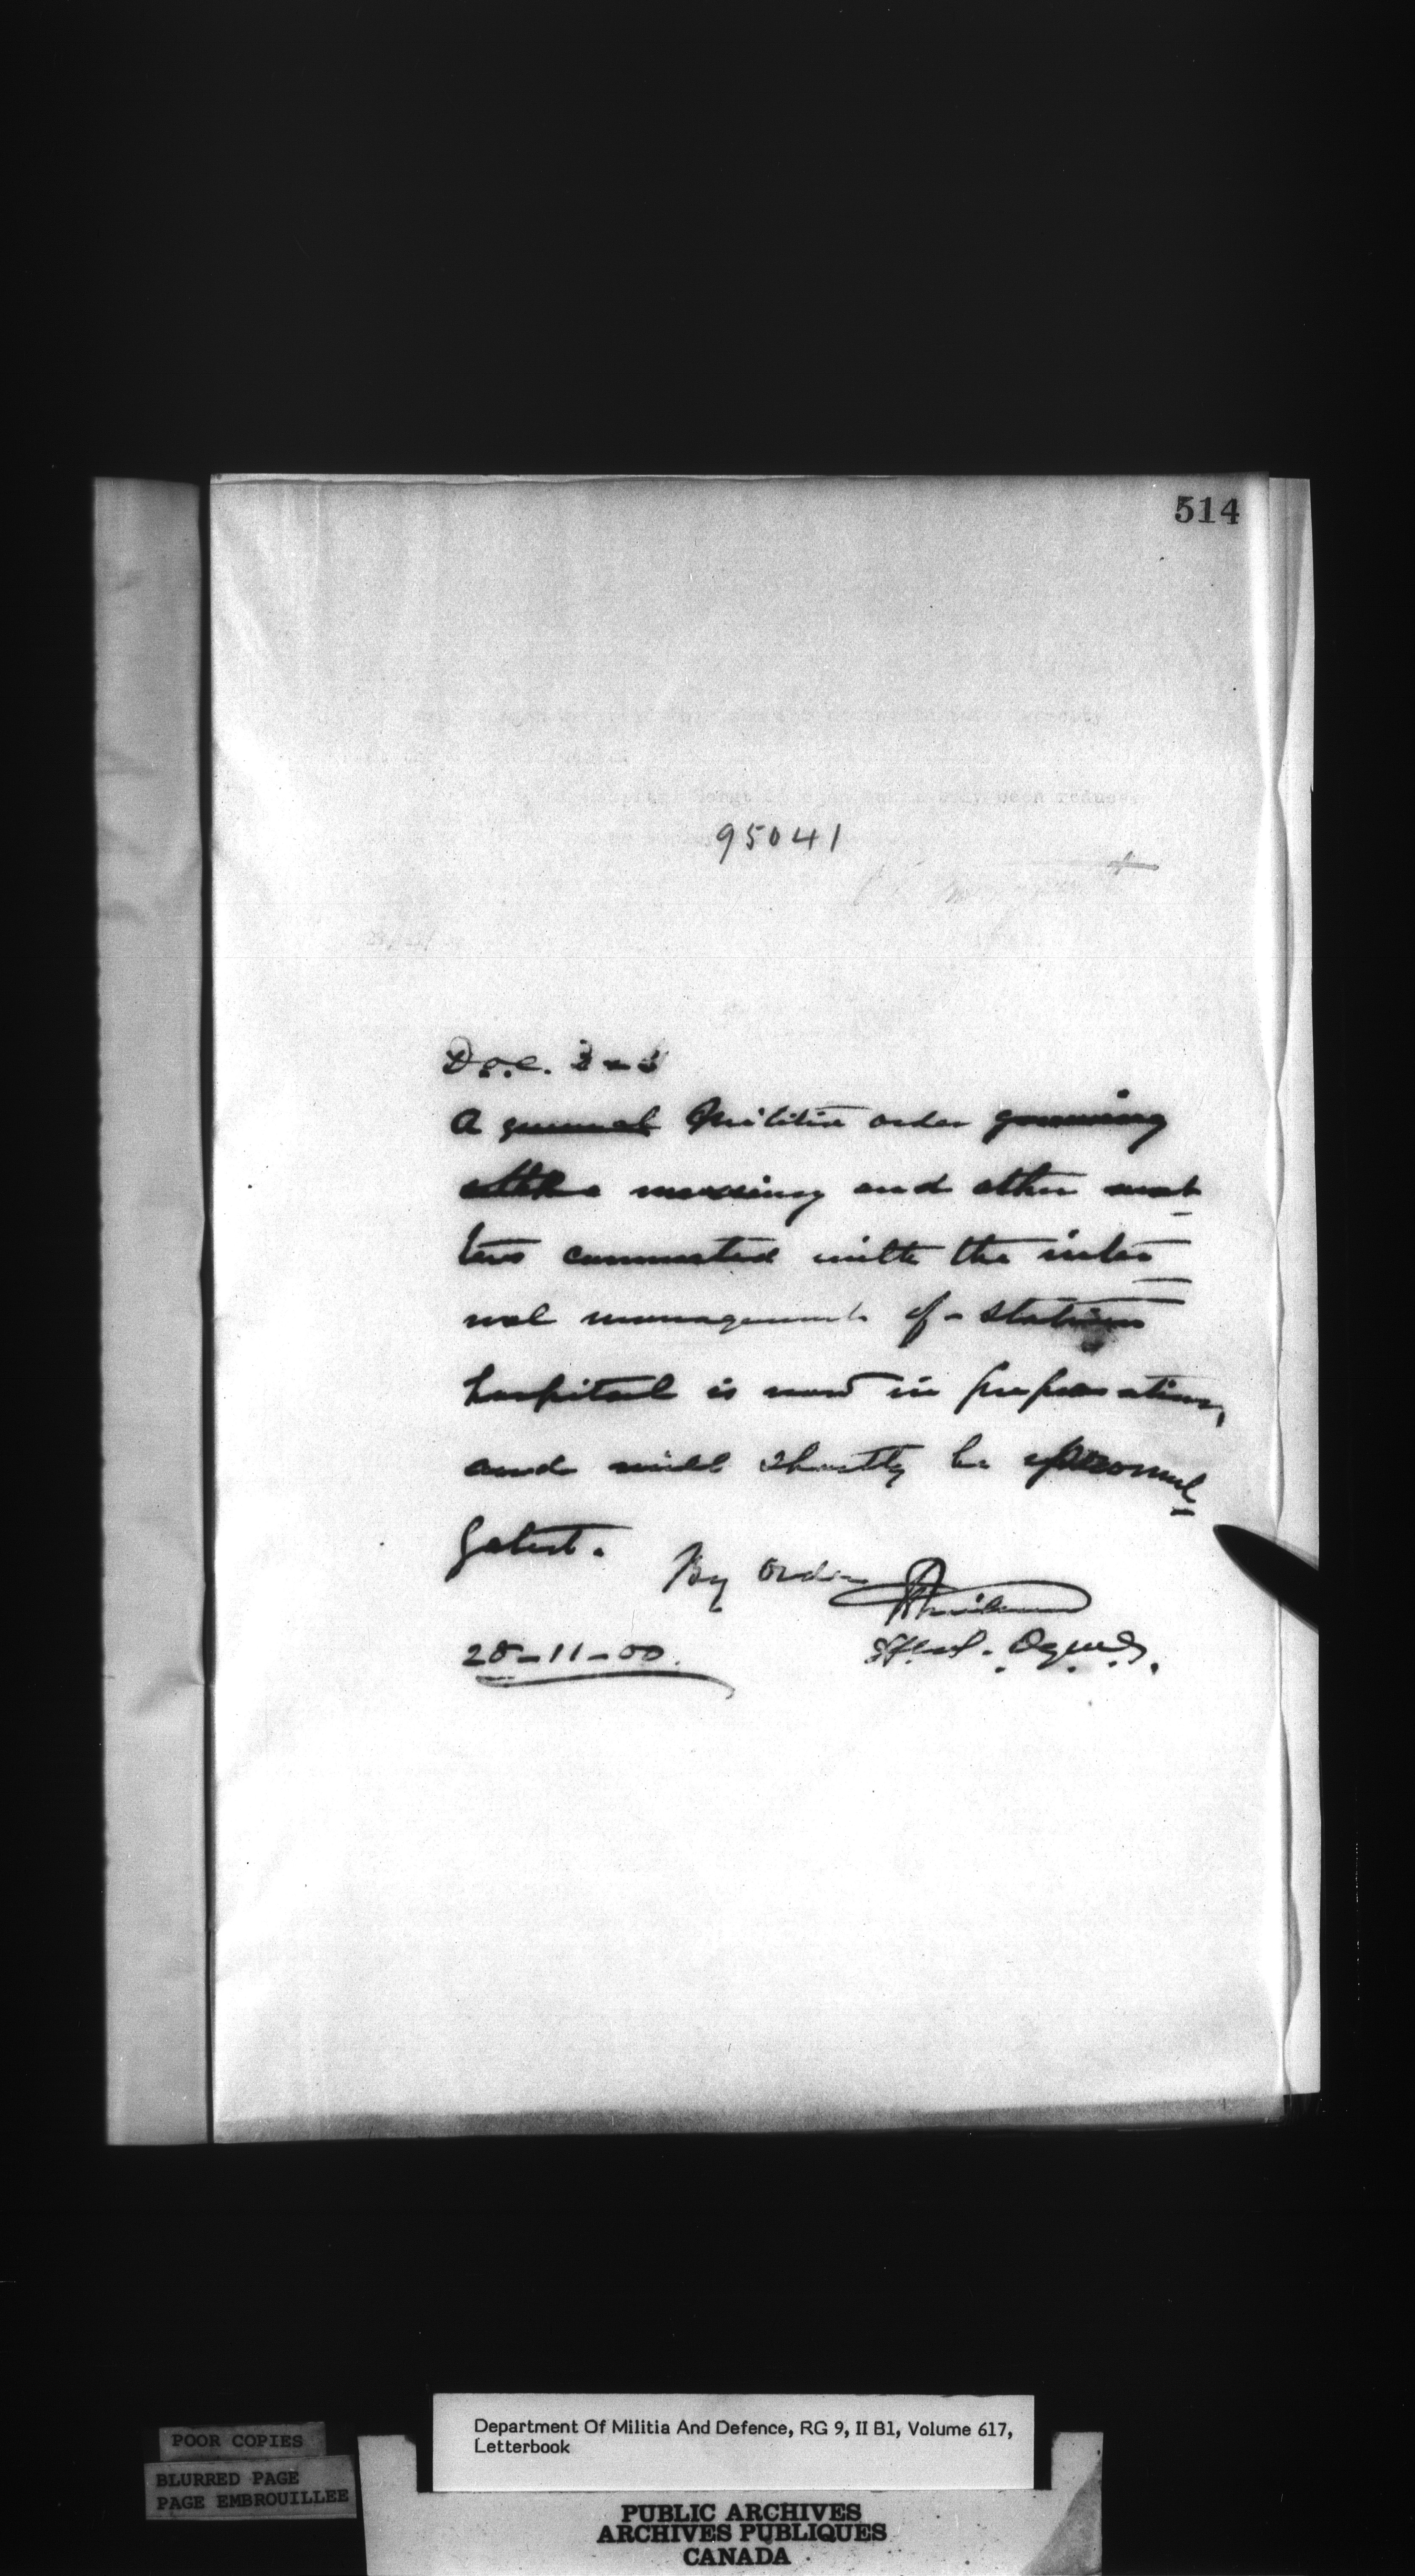 514
95041
D.O.C.
A general Militia order governing
nursing and other mat-
ters connected with the inter-
nal management of station
hospital is now in preparation,
and will shortly be promul-
gated.
By order
28-11-00.
POOR COPIES
BLURRED PAGE
PAGE EMBROUILLEE
Department Of Militia And Defence, RG 9, II B1, Volume 617,
Letterbook
PUBLIC ARCHIVES
ARCHIVES PUBLIQUES
CANADA